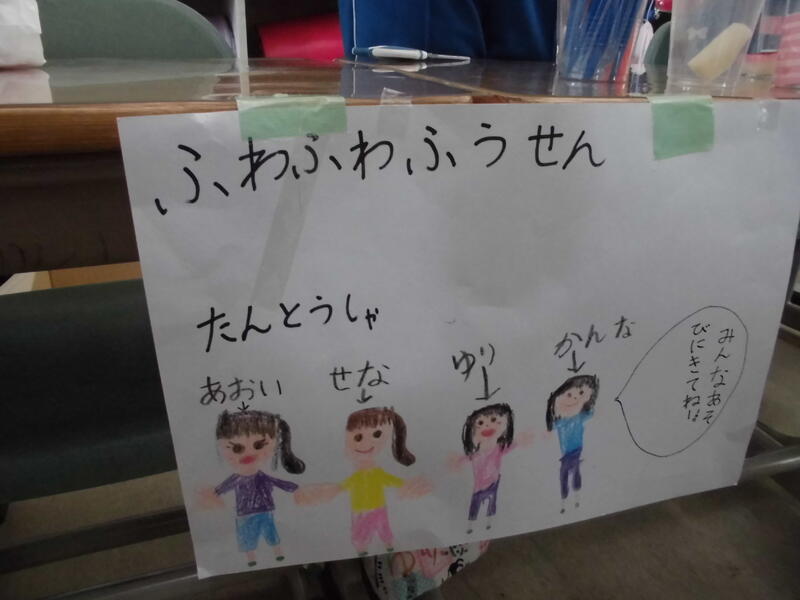 ふわふわふうせん
たんとうしゃ
あおい
せな
ゆり
かんな
みんなあそ
びにきてね!!